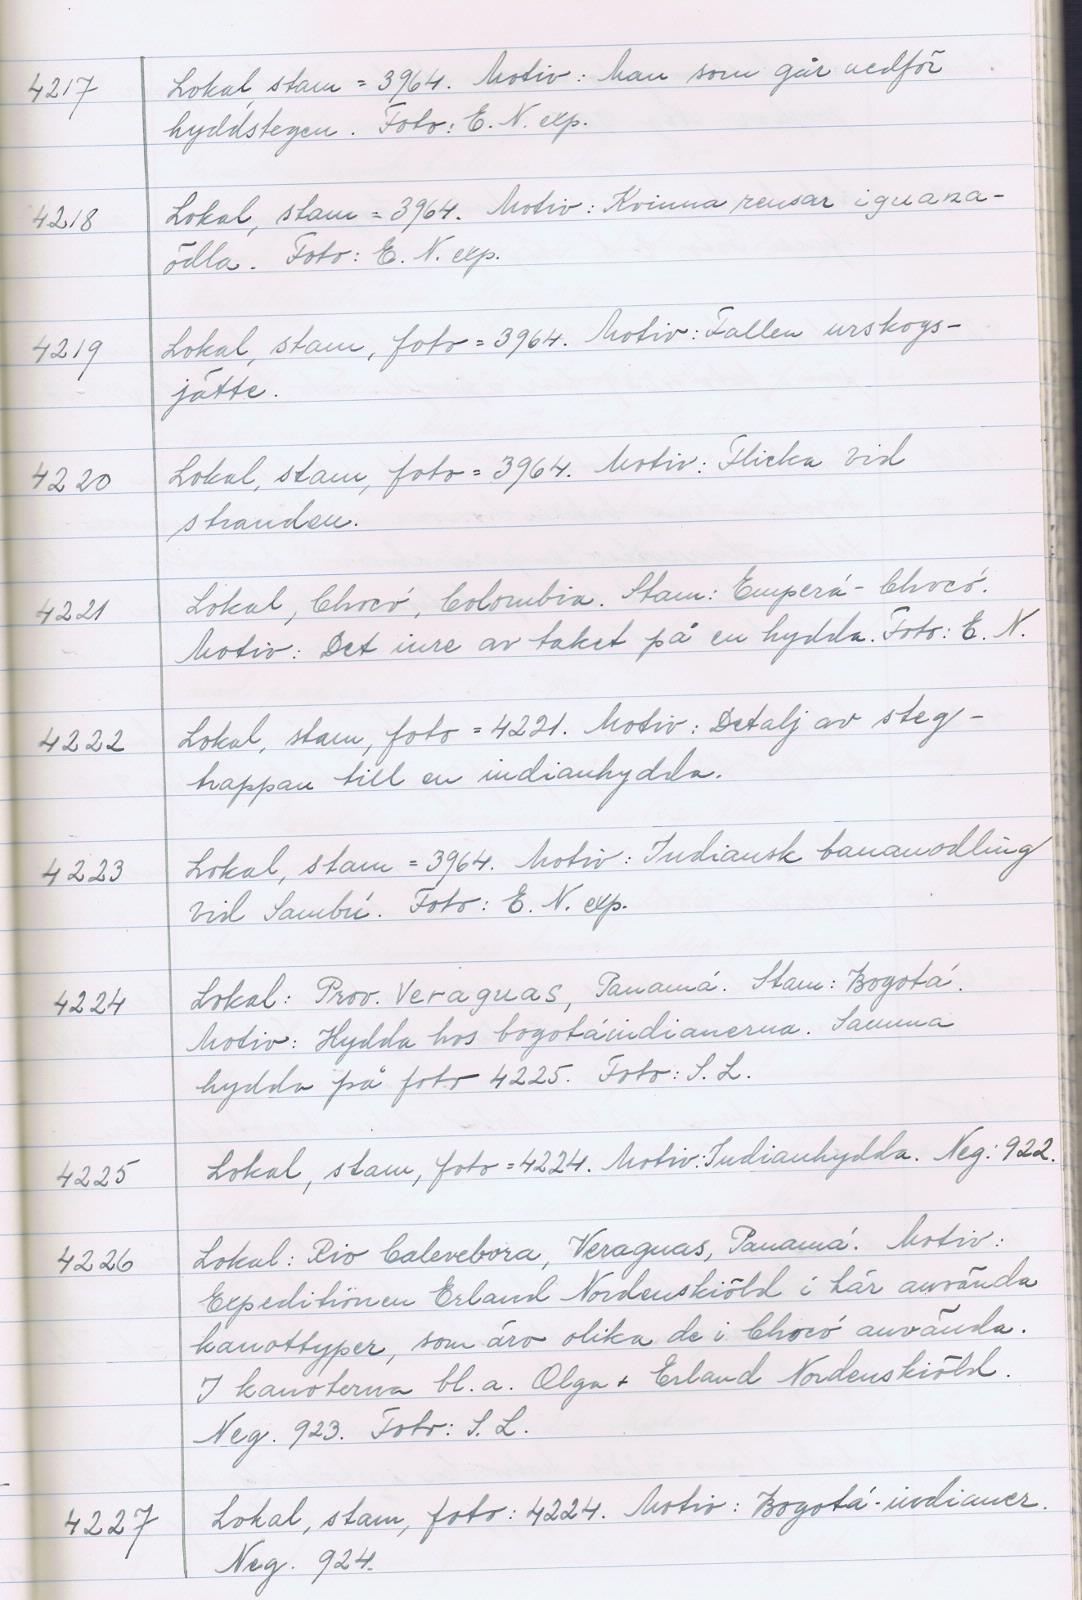 4217 Lokal, stam = 3964. Motiv: Man som går nedför
hyddstegen. Foto: E. N. exp.
4218 Lokal, stam = 3964. Motiv: Kvinna rensar iguana-
ödla. Foto: E. N. exp.
4219 Lokal, stam, foto = 3964. Motiv: Fallen urskogs-
jätte.
4220 Lokal, stam, foto = 3964. Motiv: Flicka vid
stranden.
4221 Lokal, Chocó, Colombia. Stam: Emperá-Chocó.
Motiv: Det inre av taket på en hydda. Foto: E. N.
4222 Lokal, stam, foto = 4221. Motiv: Detalj av steg-
trappan till en indianhydda.
4223 Lokal, stam = 3964. Motiv: Indiansk bananodling
vid Sambú. Foto: E. N. exp.
4224 Lokal: Prov. Veraguas, Panamá. Stam: Bogotá.
Motiv: Hydda hos bogotáindianerna. Samma
hydda på foto 4225. Foto: S. L.
4225 Lokal, stam, foto = 4224. Motiv: Indianhydda. Neg: 922.
4226 Lokal: Rio Calevebora, Veraguas, Panamá. Motiv:
Expeditionen Erland Nordenskiöld i här använda
kanottyper, som äro olika de i Chocó använda.
I kanoterna bl. a. Olga + Erland Nordenskiöld.
Neg. 923. Foto: S. L.
4227 Lokal, stam, foto: 4224. Motiv: Bogotá-indianer.
Neg. 924.